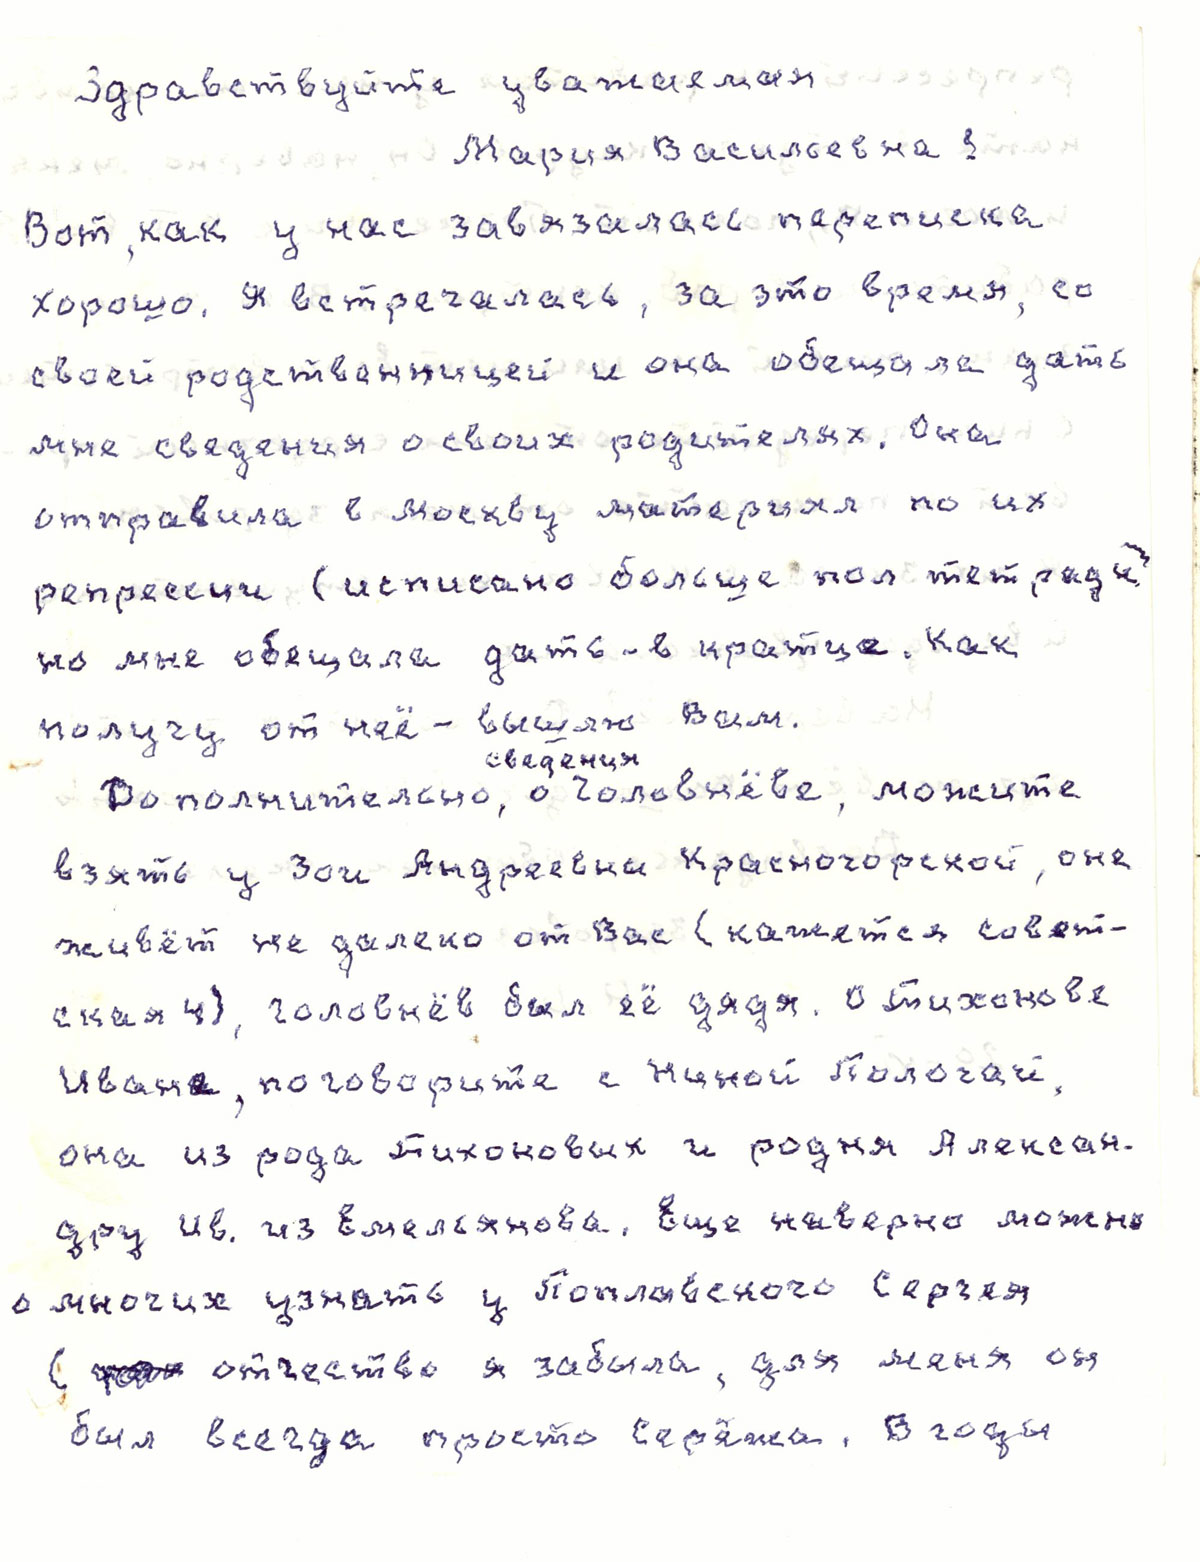 Здравствуйте уважаемая
Мария Васильевна!
Вот, как у нас завязалась переписка
хорошо. Я встречалась, за это время, со
своей родственницей и она обещала дать
мне сведения о своих родителях. Она
отправила в Москву материял по их
репрессии (исписано больше пол тетради)
но мне обещала дать - в кратце. Как
получу от неё - вышлю Вам.
сведения
Дополнительно, о Головнёве, можите
взять у Зои Андреевны Красногорской, она
живёт не далеко от Вас (кажется Совет-
ская 4), Головнёв был её дядя. О Тихонове
Иване, поговорите с Ниной Пологай,
она из рода Тихоновых и родня Алексан-
дру Ив. из Емельянова. Еще наверно можно
о многих узнать у Поплавского Сергея
( отчество я забыла, для меня он
был всегда просто Серёжа. В годы